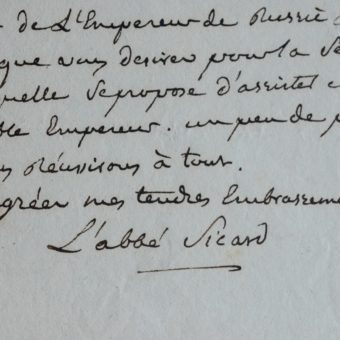 de L'Empereur de Russie
que vous desirez pour la Sé
quelle Se propose d'assister
ble Empereur. un peu de p
s réussirons à tout.
gréer mes tendres Embrasseme
L'abbé Sicard